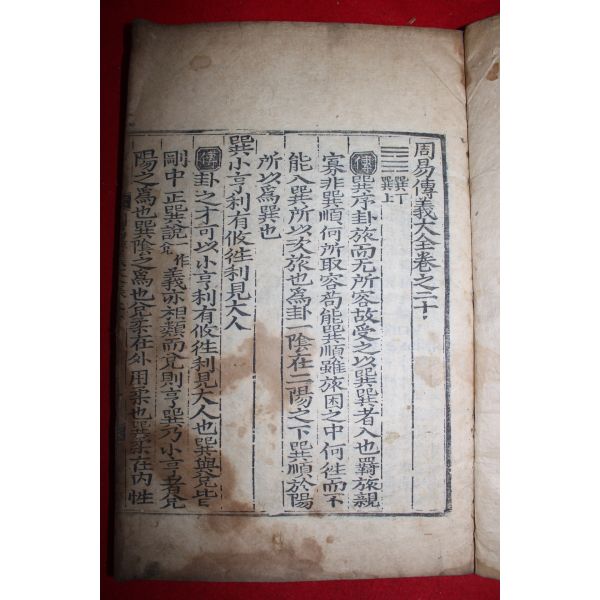 周易傳義大全卷之二十
巽下
巽上
傳 巽序卦旅而无所容故受之以巽巽者入也羇旅親
寡非巽順何所取容苟能巽順雖旅困之中何徃而不
能入巽所以次旅也爲卦一陰在二陽之下巽順於陽
所以爲巽也
巽小亨利有攸徃利見大人
傳 卦之才可以小亨利有攸徃利見大人也巽與兌皆
剛中正巽說一作義亦相類而兌則亨巽乃小亨者兌
陽之爲也巽陰之爲也兌柔在外用柔也巽柔在內性